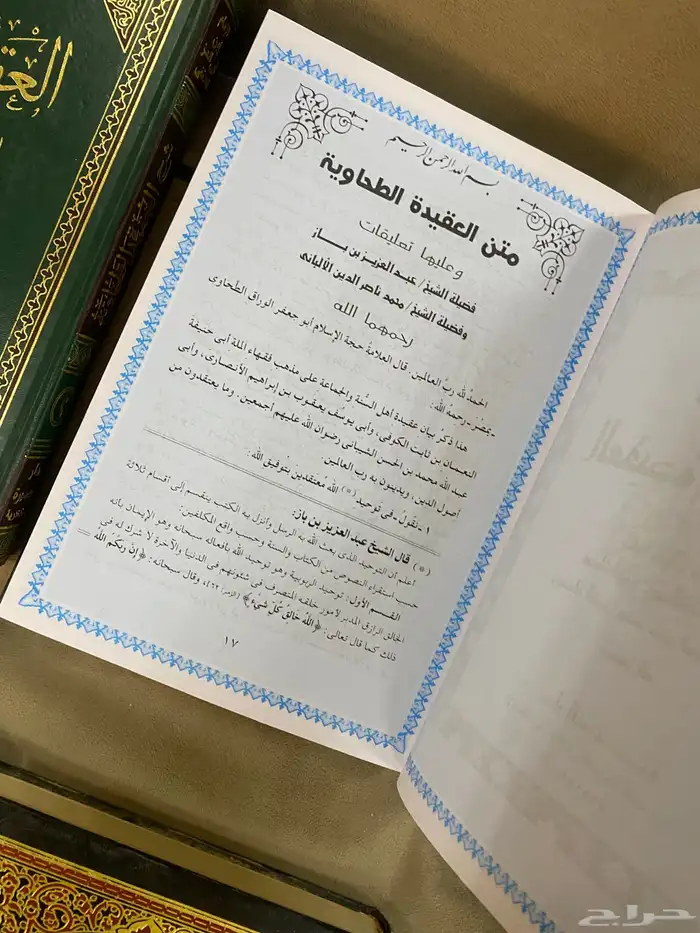 بسم الله الرحمن الرحيم
متن العقيدة الطحاوية
وعليها تعليقات
فضيلة الشيخ/ عبد العزيز بن بـــاز
وفضيلة الشيخ/ محمد ناصر الدين الألباني
رحمهما الله
الحمدُ لله ربِّ العالمين. قال العلامة حجة الإسلام أبو جعفر الوراق الطحاوي
-بمصر- رحمهُ الله:
هذا ذكرُ بيان عقيدة أهل السُّنة والجماعة على مذهب فقهاء الملة أبي حنيفة
النعمان بن ثابت الكوفي، وأبي يوسُف يعقوب بن إبراهيم الأنصاري، وأبي
عبد الله محمد بن الحسن الشيباني رضوان الله عليهم أجمعين. وما يعتقدون من
أصول الدين، ويدينون به رب العالمين.
١- نَقُولُ- في توحيد(*) الله معتقدينَ بتوفيق الله:
(*) قال الشيخ عبد العزيز بن باز:
أعلم أن التوحيد الذي بعث الله به الرسل وأنزل به الكتب ينقسم إلى أقسام ثلاثة
حسب استقراء النصوص من الكتاب والسنة وحسب واقع المكلفين:
القسم الأول: توحيد الربوبية وهو توحيد الله بأفعاله سبحانه وهو الإيمان بأنه
الخالق الرازق المدبر لأمور خلقه المتصرف في شئونهم في الدنيا والآخرة لا شرك له في
ذلك كما قال تعالى: ﴿اللَّهُ خَالِقُ كُلِّ شَيْءٍ﴾ [الزمر: ٦٢]، وقال سبحانه: ﴿إِنَّ رَبَّكُمُ اللَّهُ
١٧
حراج